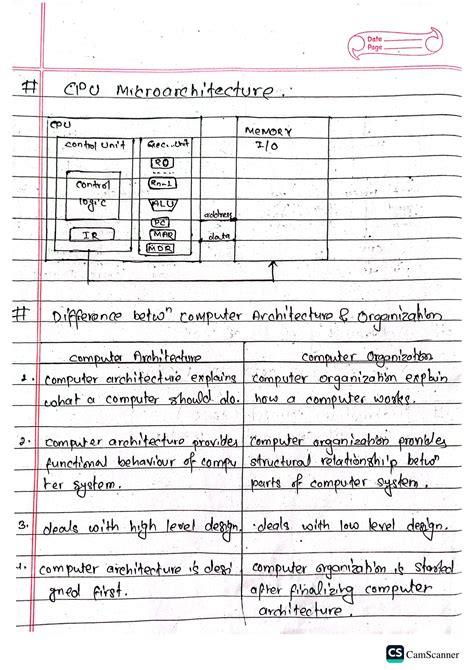 Date
Page
# CPU Microarchitecture.
CPU
Control Unit
Execu. Unit
MEMORY
I/O
R0
Rn-1
Control
logic
ALU
PC
address
IR
MAR
data
MDR
# Difference betwn Computer Architecture & Organization
Computer Architecture
Computer Organization
1. computer architecture explains
what a computer should do.
computer organization explain
how a computer works.
2. computer architecture provides
functional behaviour of compu
ter system.
computer organization provides
structural relationship betwn
parts of computer system.
3. deals with high level design.
deals with low level design.
computer architecture is desi
gned first.
computer organization is started
after finalizing computer
architecture.
CS CamScanner